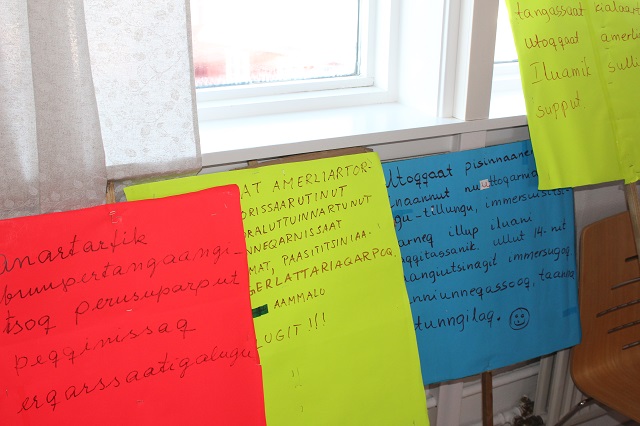 anartartik
buuupertangaangi-
tsoq perusuparput
pegginissaq
erqarssaatigalugu
AT AMERLIARTOR-
ORISSAARUTINUT
RALUTTUINNARTUNUT
NNEQARNISSAAT
MAT, PAASITITSINIAA.
GERLATTARIAQARPOQ,
AAMMALO
LUGIT!!!
!!
Utoqqaat pisinnaane
inaannut nu utoqarni
gu-tillungu, immersui
arneq illup iluani
eqqitassanik. ullut 14-nit
anguutsinagit immersugoq
nniunneqassooq, taanna
tunngilaq.
tangassaat kialaar
utoqqaat amerli
Iluamik sulli
supput.